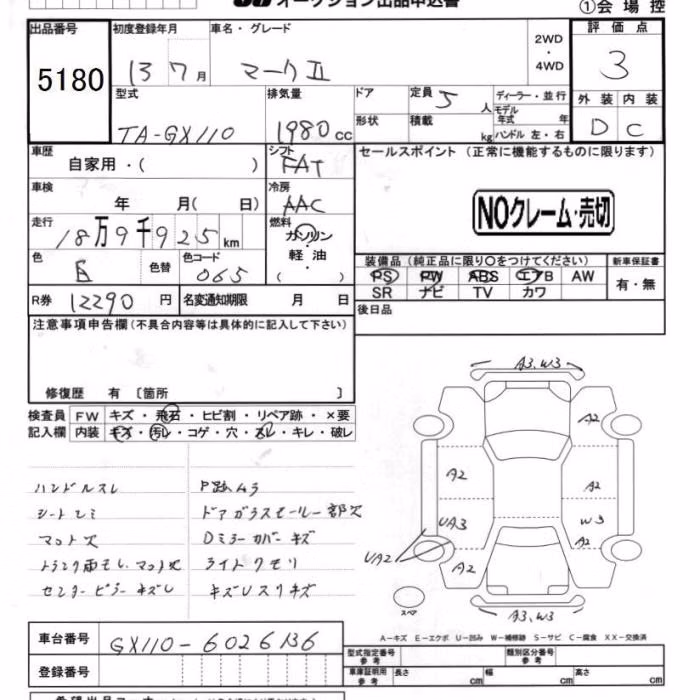 オークション出品申込書
①会場控
出品番号 初度登録年月 車名・グレード 2WD・4WD 評価点
5180 13 7月 マークⅡ 3
型式 排気量 ドア 定員 5 人 ディーラー・並行 外装 内装
形状 積載 kg モデル年式 年 ハンドル 左・右
TA-GX110 1980cc D C
車歴 自家用・( ) シフト FAT セールスポイント (正常に機能するものに限ります)
車検 年 月( 日) 冷房 AAC
NOクレーム・売切
走行 18万9千925km 燃料 ガソリン 軽油 ( )
色 色替 色コード 065
装備品 (純正品に限り○をつけてください) 新車保証書
PS PW ABS エアB AW 有・無
SR ナビ TV カワ
R券 12290円 名変通知期限 月 日
後日品
注意事項申告欄(不具合内容等は具体的に記入して下さい)
修復歴 有 〔箇所 〕
検査員 FW キズ・飛石・ヒビ割・リペア跡・×要
記入欄 内装 キズ・汚レ・コゲ・穴・スレ・キレ・破レ
ハンドルスレ
シートシミ
マット欠
センターピラーキズ
ドアガラスモール一部欠
Dミラーカバーキズ
ライトクモリ
A3.W3
A2
A2
A2
A2
UA3
W3
A2
UA2
A2
スペア
A3.W3
A-キズ E-エクボ U-凹み W-補修跡 S-サビ C-腐食 XX-交換済
車台番号 GX110-6026136
型式指定番号 参考 類別区分番号 参考
登録番号
車庫証明用 参考 長さ cm 幅 cm 高さ cm